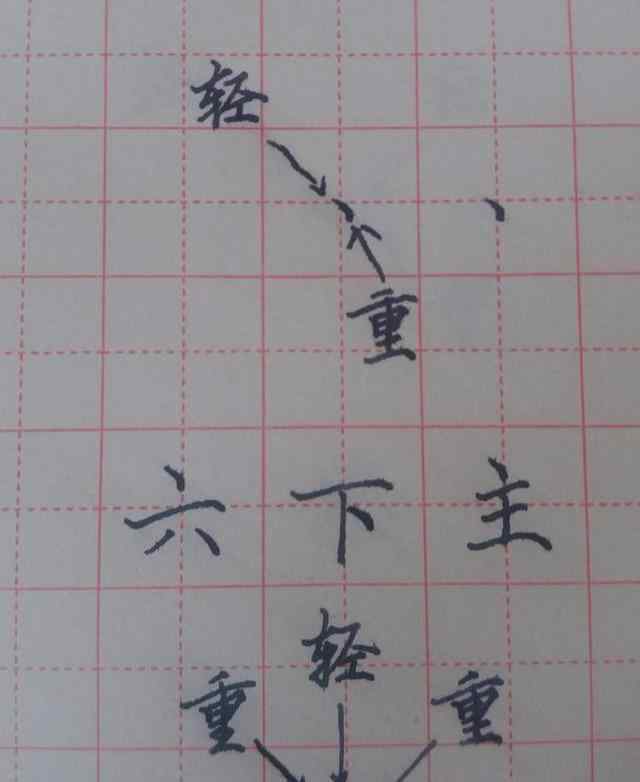 轻
重
六下主
轻
重 重